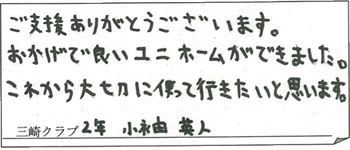 ご支援ありがとうございます。
おかげで良いユニホームができました。
これから大切に使って行きたいと思います。
三崎クラブ2年 小袖 英人